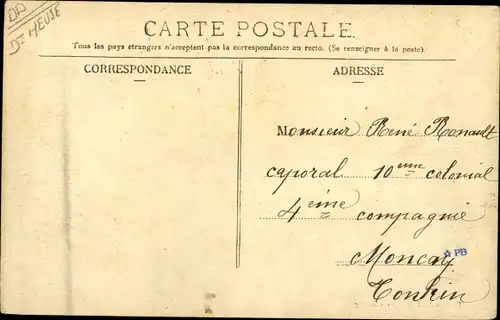 DD
Dt MEUSE
CARTE POSTALE
Tous les pays étrangers n'acceptent pas la correspondance au recto. (Se renseigner à la poste).
CORRESPONDANCE
ADRESSE
Monsieur René Renault
caporal 10eme colonial
4eme compagnie
Moncay
☆PB
Tonkin